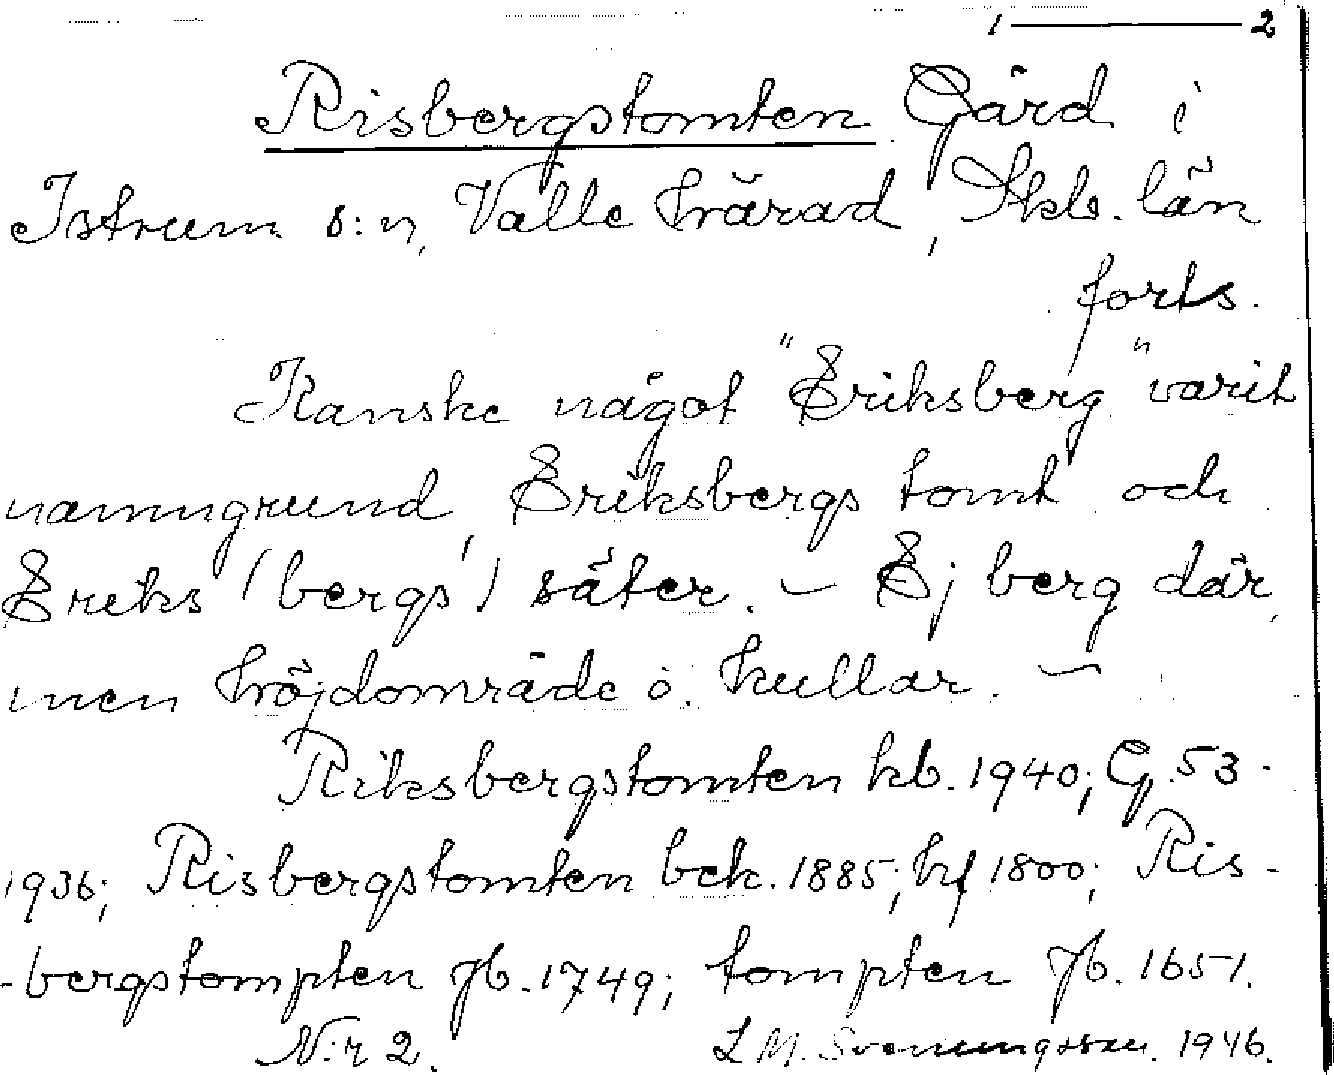 1 — 2
Risbergstomten Gård i
Istrum s:n, Valle härad, Skb. län
forts.
Kanske något "Eriksberg" varit
namngrund, Eriksbergs tomt och
Eriks (bergs) säter. – Ej berg där,
men höjdområde o. kullar. –
Riksbergstomten kb. 1940; G. 53
1936; Risbergstomten bek. 1885; hf 1800; Ris-
-bergstompten Jb. 1749; tompten Jb. 1651.
N:r 2. L M. Svenungsson. 1946.